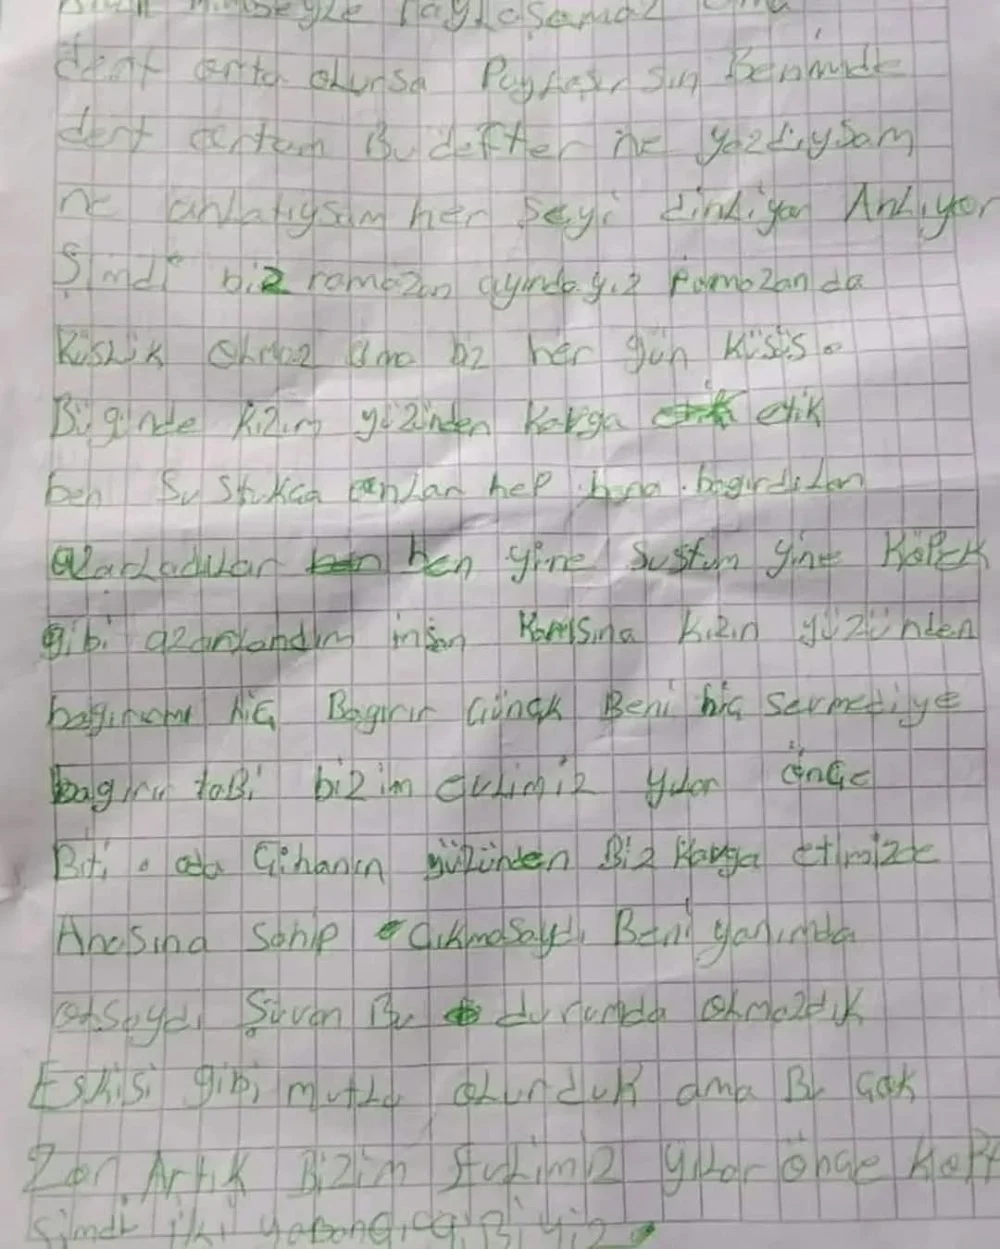 kimseyle Paylaşamaz ama
dert orta olursa Paylaşırsın Benimde
dert ortam Bu defter ne yazdıysam
ne anlatıysam her şeyi dinliyor Anlıyor
Şimdi biz ramazan ayındayız Ramazanda
Küslük olmaz ama biz her gün Küsüs.
Bügünde kızım yüzünden kavga etik
ben Sustukca onlar hep bana bagırdılar
azarladılar ben yine Sustum yine Köpek
gibi azarlandım insan Karısına kızın yüzünden
bagırırmı hiç Bagırır Günçk Beni hiç Sevmediye
bagırır tabi bizim evlimiz yılar önçe
Biti. oda Cihanın yüzünden Biz kavga etimizde
Anasına Sahip Çıkmasaydı Beni yanımda
olsaydı Şuvan Bu durumda olmazdık
Eskisi gibi mutlu olurduk ama Bu Çok
Zor. Artık Bizim Evlimiz yılar önçe
şimdi iki yabançı gibiyiz